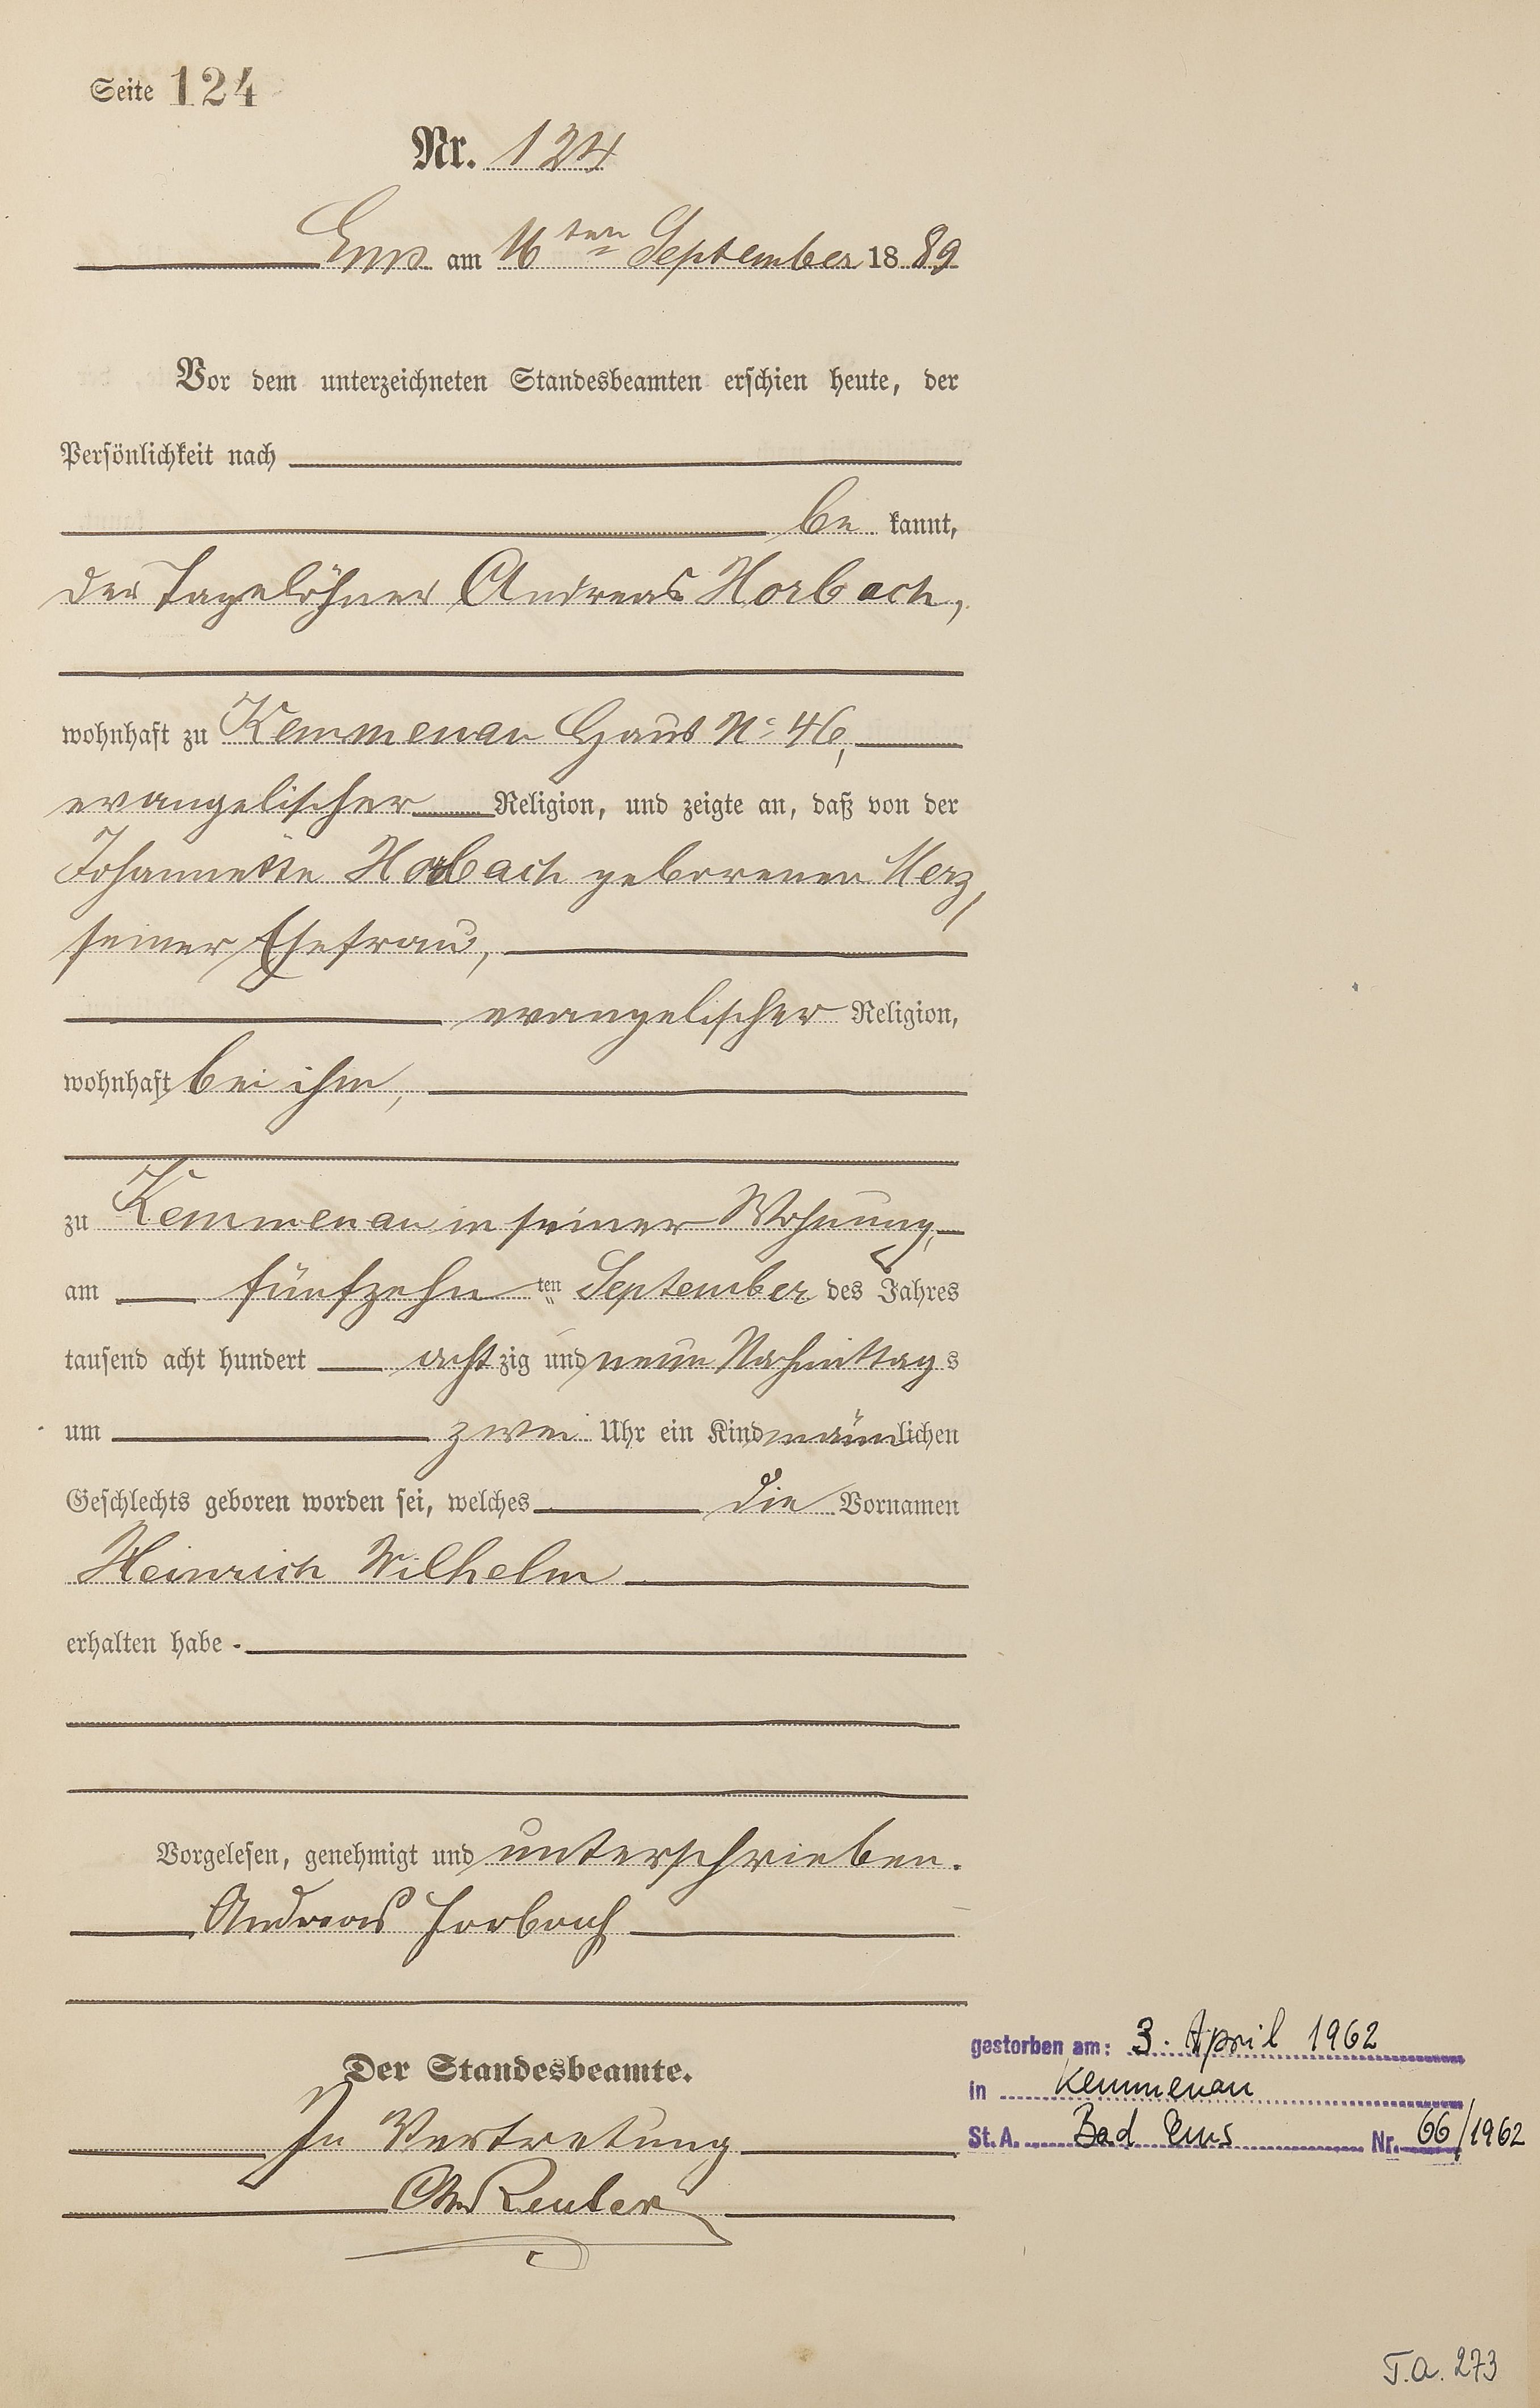 Seite 124
Nr. 124
Ems am 16ten September 1889
Vor dem unterzeichneten Standesbeamten erschien heute, der
Persönlichkeit nach
be kannt,
der Tagelöhner Andreas Horbach,
wohnhaft zu Kemmenau Haus No 46,
evangelischer Religion, und zeigte an, daß von der
Johannette Horbach geborenen Merz,
seiner Ehefrau,
evangelischer Religion,
wohnhaft bei ihm,
zu Kemmenau in seiner Wohnung,
am fünfzehn ten September des Jahres
tausend acht hundert acht zig und neun Nachmittag s
um zwei Uhr ein Kind männlichen
Geschlechts geboren worden sei, welches die Vornamen
Heinrich Wilhelm
erhalten habe.
Vorgelesen, genehmigt und unterschrieben.
Andreas Horbach
Der Standesbeamte.
In Vertretung
Reuter
gestorben am: 3. April 1962
in Kemmenau
St. A. Bad Ems Nr. 66/1962
T.A. 273